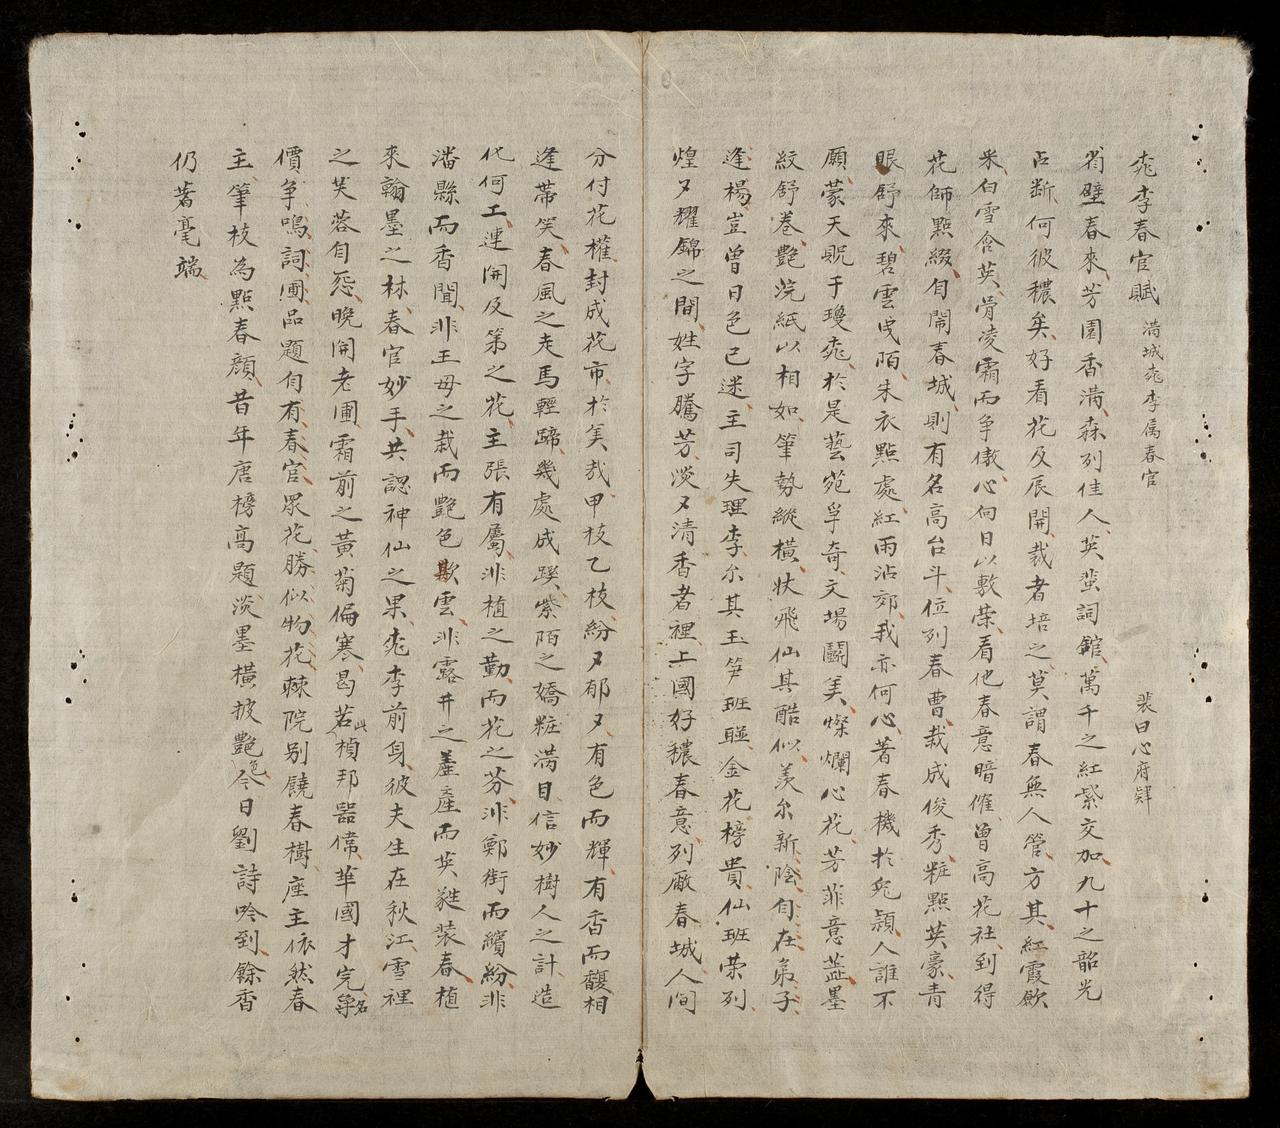 桃李春官賦 满城桃李属春官 裴曰心府肄
省壁春來芳園香满森列佳人英蜚詞館萬千之紅紫交加九十之韶光
占断何彼穠矣好看花及辰開裁者培之莫謂春無人管方其紅霞歛
釆白雪含英骨凌霜而争傲心向日以敷荣看他春意暗催曾高花社到得
花師點綴自鬧春城則有名高台斗位列春曹栽成俊秀粧點英豪青
眼舒來碧雲曳陌朱衣點處紅雨沾郊我亦何心著春機於兎頴人誰不
願蒙天貺于瓊桃於是藝苑孚奇文場鬭美燦爛心花芳菲意蕋墨
紋舒卷艷浣紙以相如筆勢縱横状飛仙其酷似羡尔新陰自在弟子
逢楊豈曾日色已迷主司失理李尔其玉笋班聯金花榜貴仙班荣列
煌々耀錦之間姓字騰芳淡々清香者裡上國好穠春意列廠春城人间
分付花權封成花市於美哉甲枝乙枝紛々郁々有色而輝有香而馥相
逢帯笑春風之走馬輕蹄幾處成蹊紫陌之嬌粧满目信妙樹人之計造
化何工連開及第之花主張有屬非植之勤而花之芬非鄭街而繽紛非
潘縣而香聞非王母之栽而艷色欺雲非露井之產而英蕤装春植
來翰墨之林春官妙手共認神仙之果桃李前身彼夫生在秋江雪裡
之芙蓉自怨晚開老圃霜前之黄菊偏寒曷若此楨邦器偉華國才完名孚
價争鳴詞圃品題自有春官眾花勝似物花棘院别饒春樹座主依然春
主筆枝為點春顔昔年唐榜高題淡墨横披艷色今日劉詩吟到餘香
仍著毫端